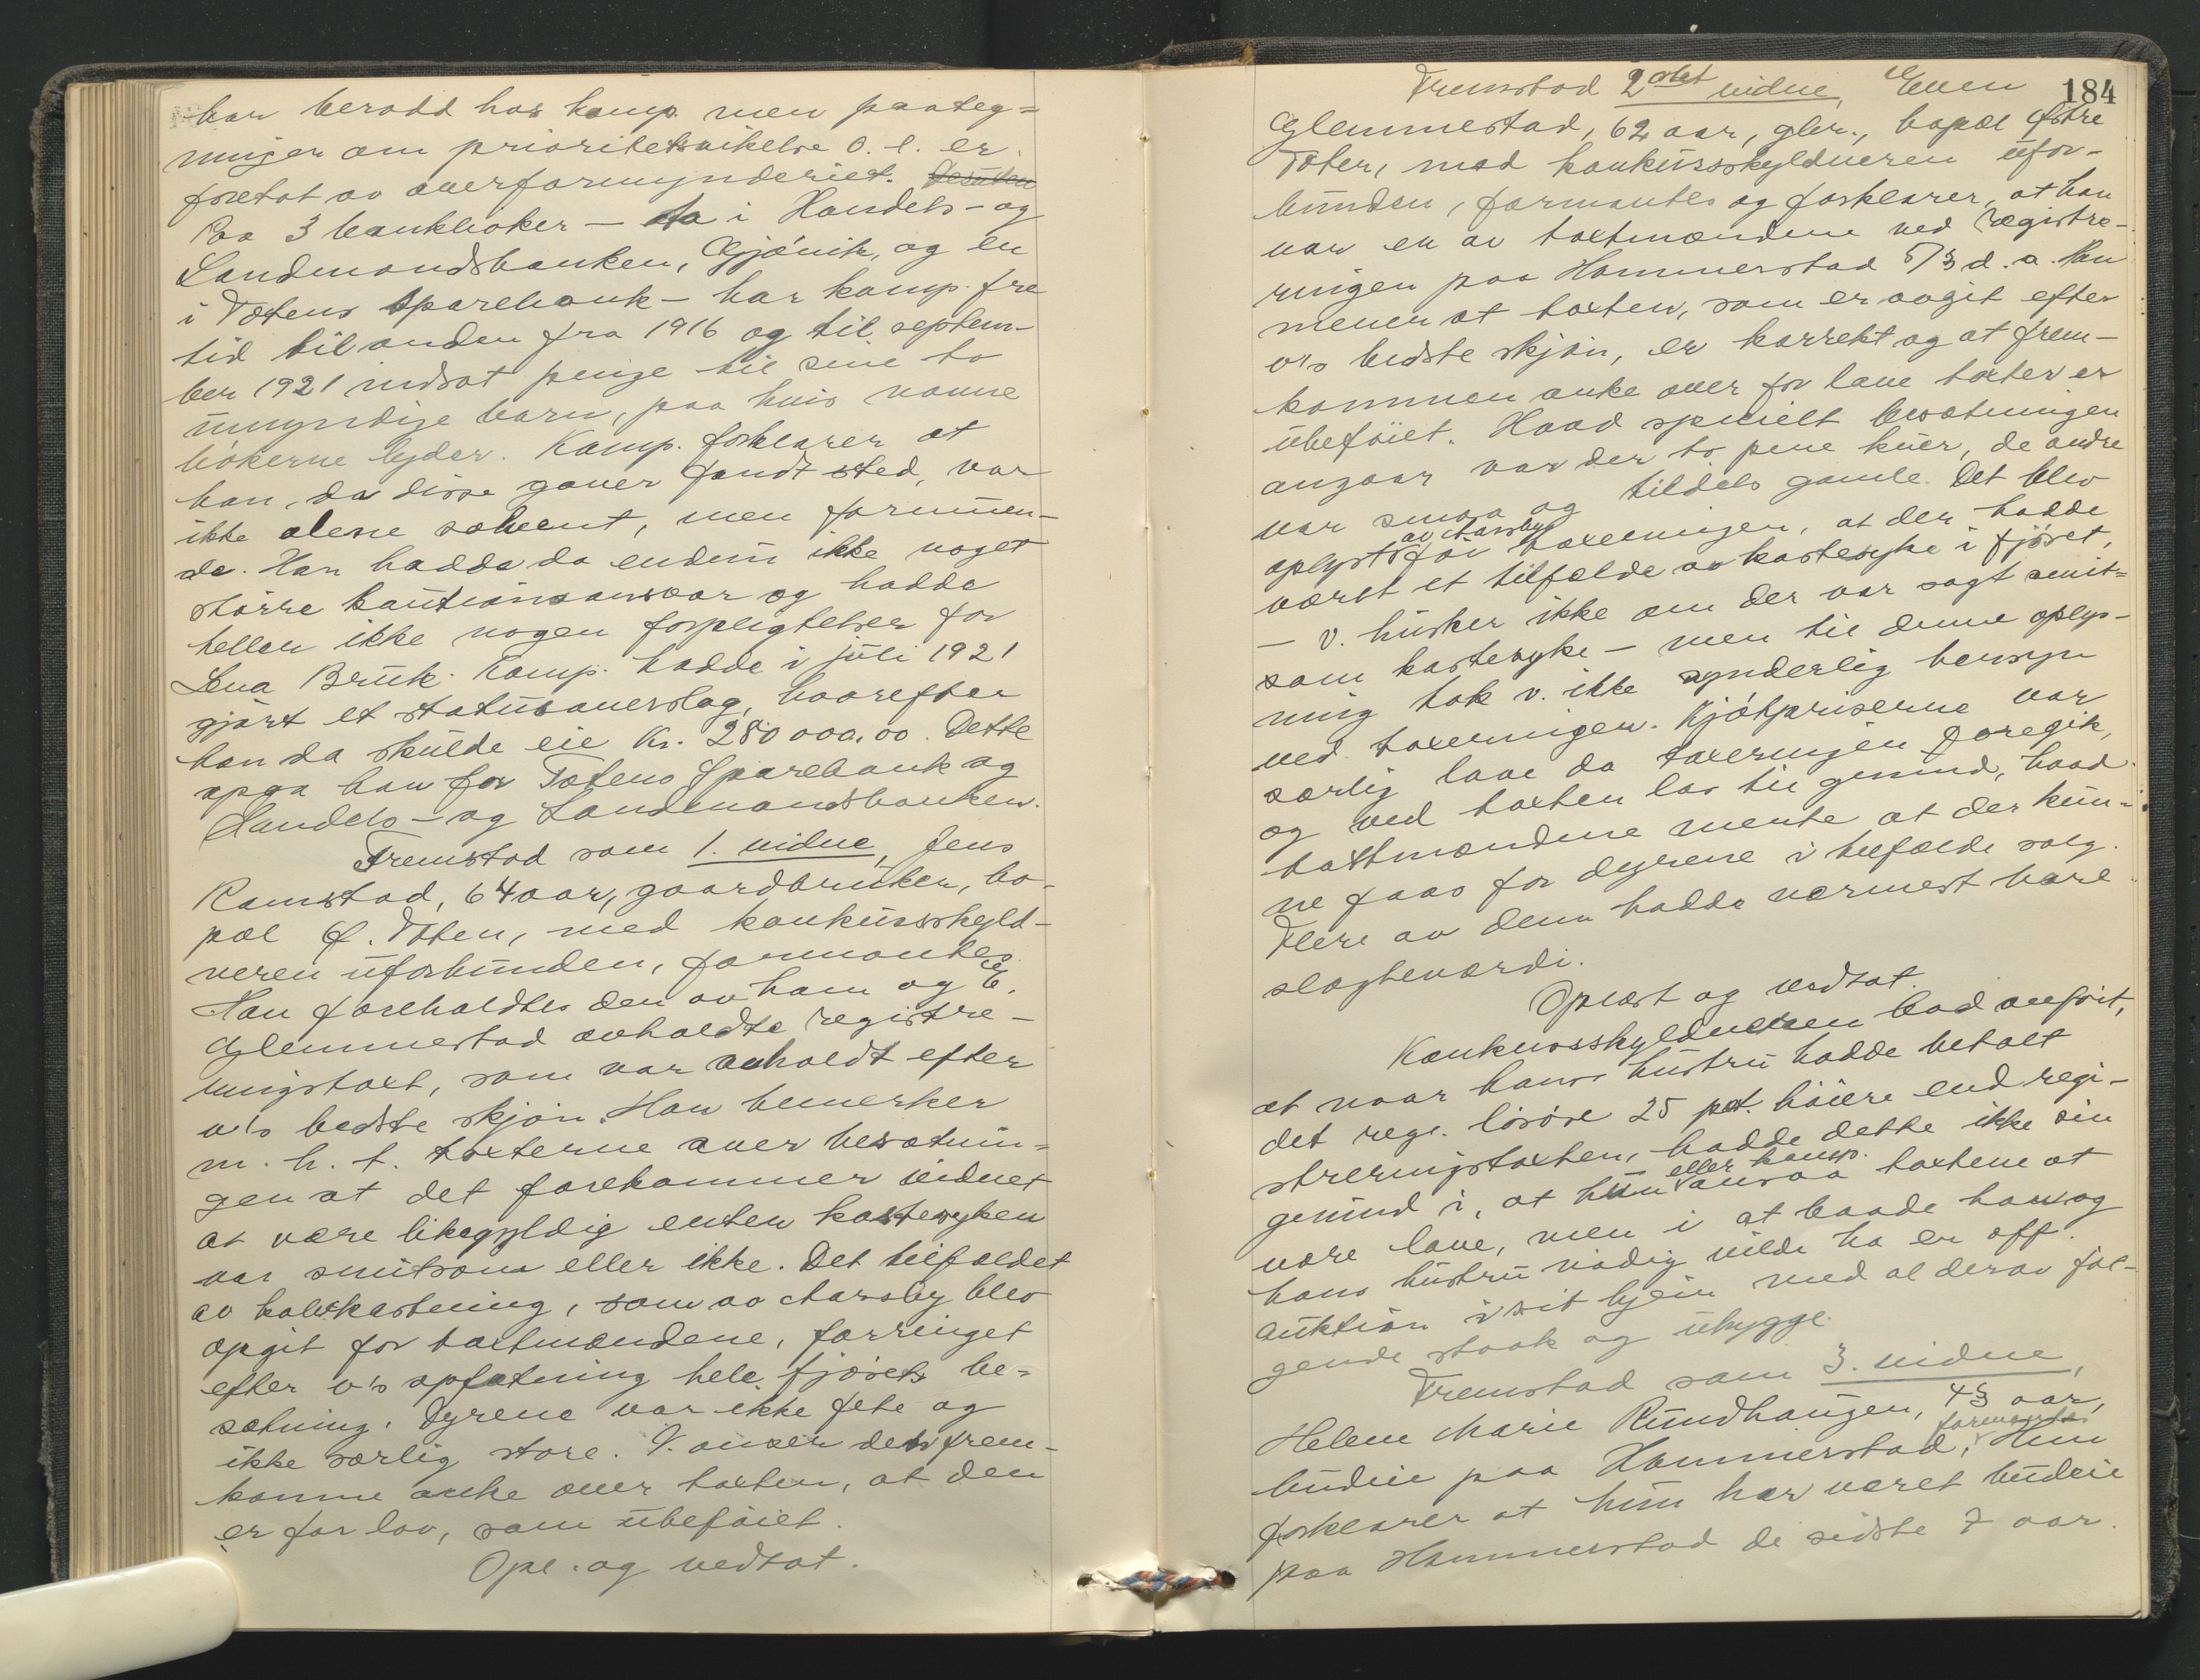 har berodd hos komp. men paateg-
ninger om prioritetsvikelse o. l. er
foretat av overformynderiet. Desuten
Paa 3 bankbøker — to i Handels- og
Landmandsbanken, Gjøvik, og en
i Totens Sparebank — har komp. fra
tid til anden fra 1916 og til septem-
ber 1921 indsat penge til sine to
umyndige barn, paa hvis navne
bøkerne lyder. Komp. forklarer at
han, da disse gaver fandt sted, var
ikke alene solvent, men formuen-
de. Han hadde da endnu ikke noget
större kautionsansvar og hadde
heller ikke nogen forpligtelser for
Lena Bruk. Komp. hadde i juli 1921
gjört et statusoverslag, hvorefter
han da skulde eie Kr. 280 000,00. Dette
opga han for Totens Sparebank og
Handels- og Landmandsbanken.
Fremstod som 1. vidne, Jens
Ramstad, 64 aar, gaardbruker, bo-
pæl Ø. Toten, med konkursskyld-
neren uforbunden, formantes.
Han foreholdtes den av ham og E.
Glemmestad avholdte registre-
ringstaxt, som var avholdt efter
v's bedste skjøn. Han bemerker
m. h. t. taxterne over besætnin-
gen at det forekommer vidnet
at være likegyldig enten kastesyken
var smitsom eller ikke. Det tilfældet
av kalvkastning, som av Aarsby blev
opgit for taxtmændene, forringet
efter v's opfatning hele fjøsets be-
sætning. Dyrene var ikke fete og
ikke særlig store. V. anser den frem-
komne anke over taxten, at den
er for lav, som ubeføiet.
Opl. og vedtat.
184
Fremstod 2det vidne, Even
Glemmestad, 62 aar, gbr., bopæl Østre
Toten, med konkursskyldneren ufor-
bunden, formantes og forklarer, at han
var en av taxtmændene ved registre-
ringen paa Hammerstad 5/3 d. a. Han
mener at taxten, som er avgit efter
v's bedste skjøn, er korrekt og at frem-
kommen anke over for lave taxter er
ubeføiet. Hvad specielt besætningen
angaar var der to pene kuer, de andre
var smaa og tildels gamle. Det blev
av Aarsby
oplyst før taxeringen, at der hadde
været et tilfælde av kastesyke i fjøset,
— v. husker ikke om der var sagt smit-
som kastesyke — men til denne oplys-
ning tok v. ikke synderlig hensyn
ved taxeringen. Kjøtpriserne var
særlig lave da taxeringen foregik,
og ved taxten las til grund, hvad
taxtmændene mente at der kun-
ne faas for dyrene i tilfælde salg.
Flere av dem hadde nærmest bare
slagteværdi.
Oplæst og vedtat.
Konkursskyldneren bad anført,
at naar hans hustru hadde betalt
det regi. løsøre 25 pct. høiere end regi-
streringstaxten, hadde dette ikke sin
eller komp.
grund i, at hun ansaa taxtene at
være lave, men i at baade han og
hans hustru nødig vilde ha en off.
auktion i sit hjem med al derav føl-
gende staak og uhygge.
Fremstod som 3. vidne,
Helene Marie Rundhaugen, 43 aar,
formantes
budeie paa Hammerstad, Hun
forklarer at hun har været budeie
paa Hammerstad de sidste 7 aar.